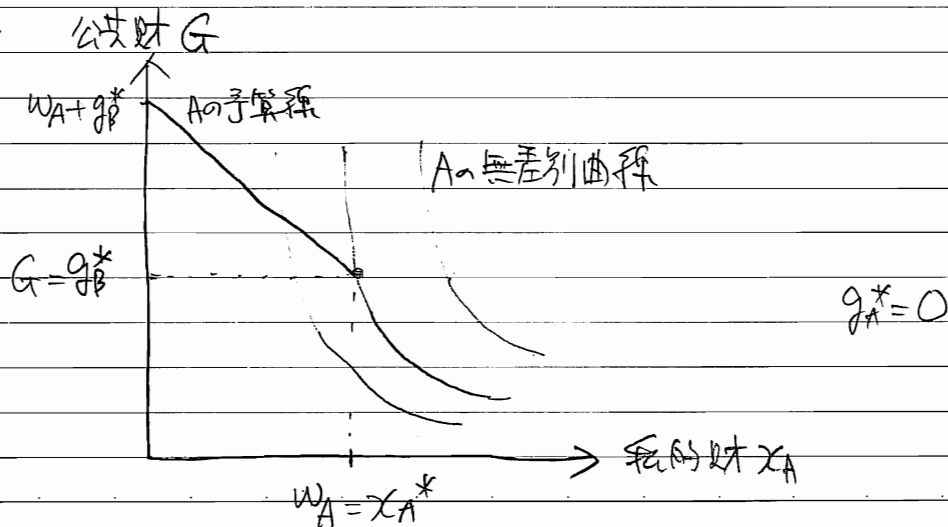 公共財 G
w_A+g_B^*
Aの予算線
Aの無差別曲線
G=g_B^*
g_A^*=0
私的財 x_A
w_A=x_A^*